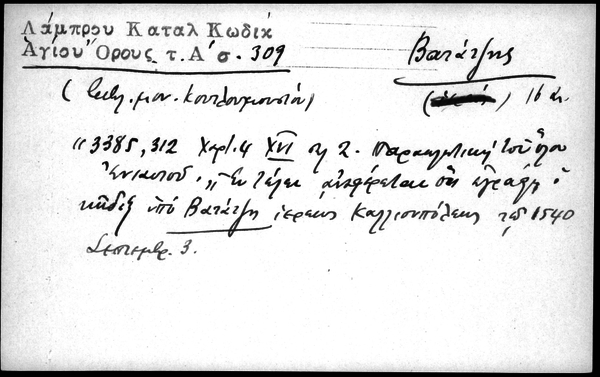 Λάμπρου Καταλ Κωδικ
Αγίου Όρους τ. Α' σ. 309
Βατάτζης
(Βιβλ. μον. Κουτλουμουσίου)
( ) 16 αι.
"3385, 312 Χαρτ. 4 XVI φ. 2. Παρακλητική του όλου
Ενιαυτού. "Εν τέλει αναφέρεται ότι εγράφη ο
κώδιξ υπό Βατάτζη ιερέως Καλλιουπόλεως τω 1540
Σεπτεμβρ. 3.